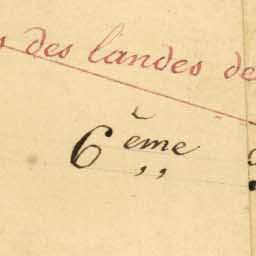 s des landes de
6 ème